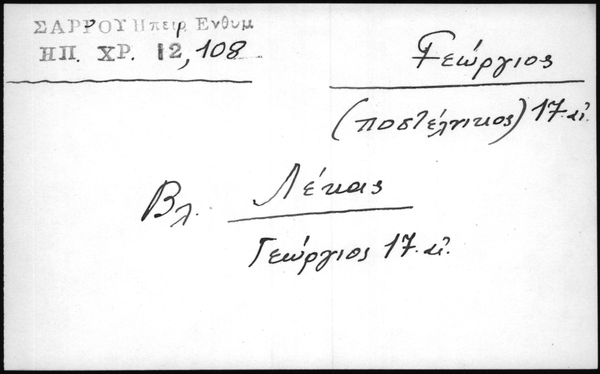 ΣΑΡΡΟΥ Ηπειρ. Ενθυμ
ΗΠ. ΧΡ. 12, 108
Γεώργιος
(ποστέλνικος) 17. αἰ.
Βλ. Λέκας
Γεώργιος 17. αἰ.